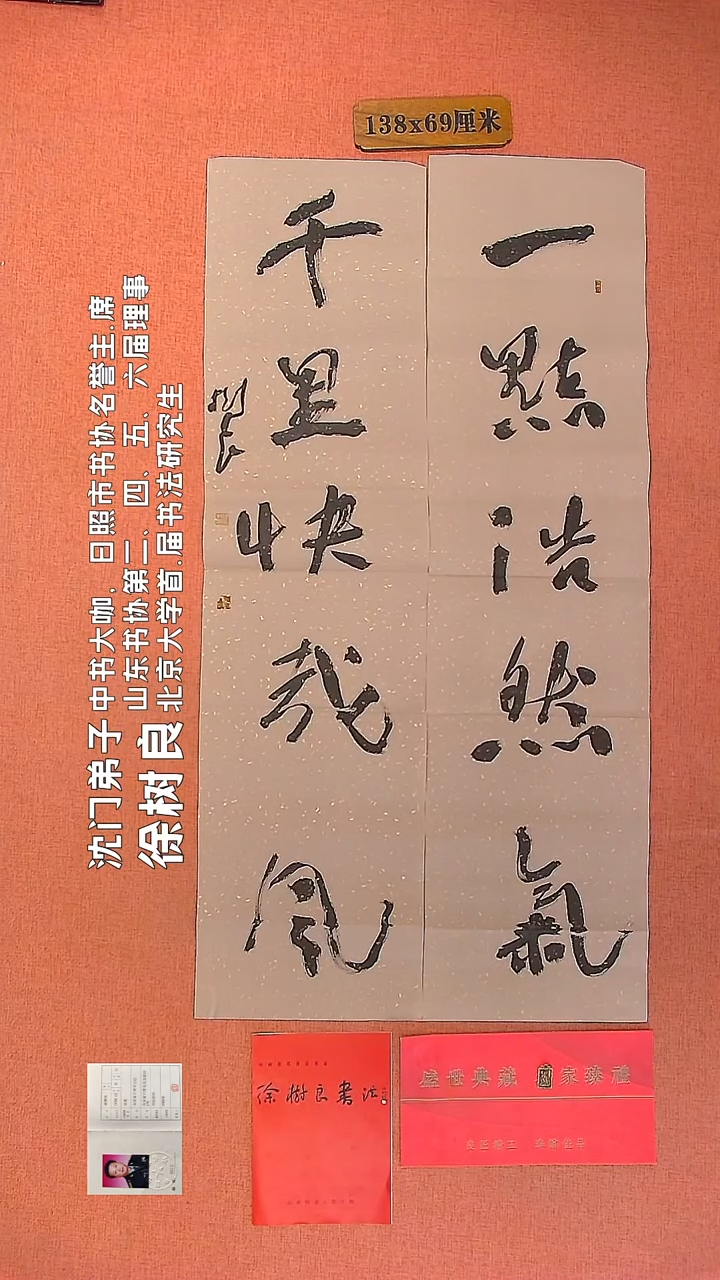 138x69厘米
一點浩然氣
千里快哉風
沈门弟子 中书大咖,日照市书协名誉主.席
山东书协第二、四、五、六届理事
徐树良 北京大学首.届书法研究生
徐樹良書法
盛世典藏 國家臻禮